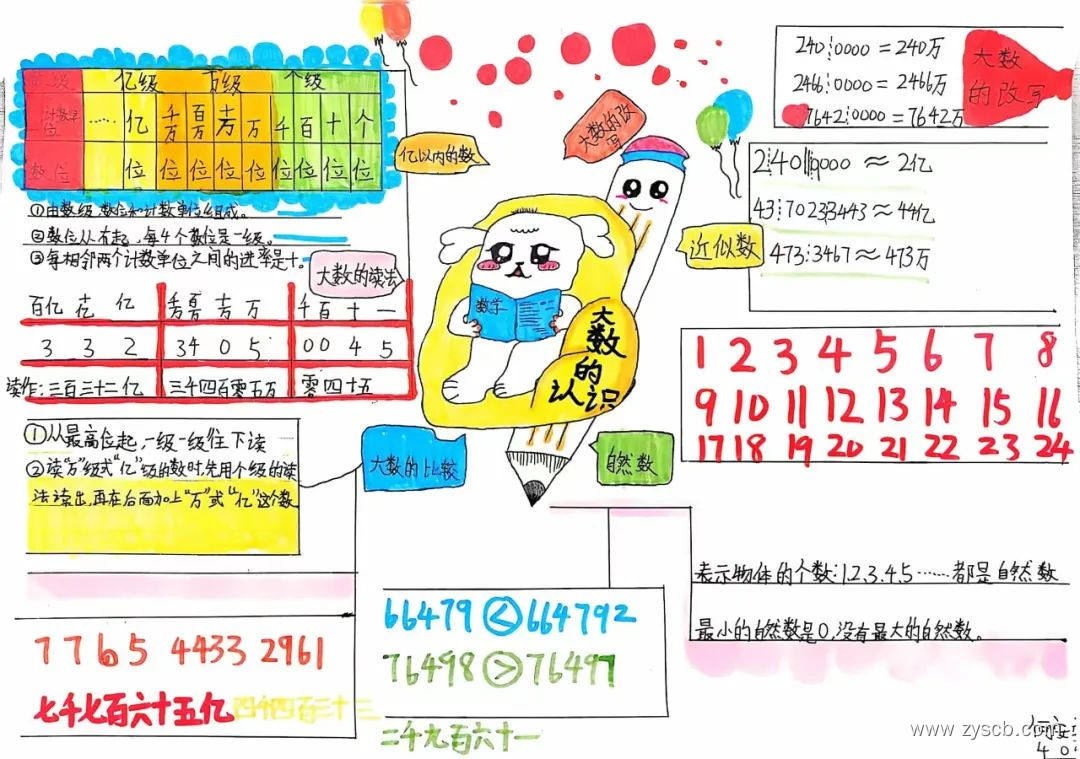 数级 …… 亿级 万级 个级
计数单位 …… 亿 千万 百万 十万 万 千 百 十 个
数位 位 位 位 位 位 位 位 位 位
①由数级、数位和计数单位组成。
②数位从右起，每4个数位是一级。
③每相邻两个计数单位之间的进率是十。
亿以内的数
大数的改写
大数的读法
百亿 十亿 亿 千万 百万 十万 万 千 百 十 一
3 3 2 34 0 5 00 4 5
读作:三百三十二亿 三千四百零五万 零四十五
①从最高位起,一级一级往下读
②读"万"级或"亿"级的数时,先用个级的读
法读出,再在后面加上"万"或"亿"这个数
7765 4433 2961
七千七百六十五亿 四千四百三十三
二千九百六十一
大数的比较
66479 < 664792
76498 > 76497
数学
大数的认识
240┊0000 = 240万
2466┊0000 = 2466万
7642┊0000 = 7642万
大数的改写
近似数
43┊70233443 ≈ 44亿
473┊3467 ≈ 473万
1 2 3 4 5 6 7 8
9 10 11 12 13 14 15 16
17 18 19 20 21 22 23 24
自然数
表示物体的个数:1.2.3.4.5……都是自然数
最小的自然数是0,没有最大的自然数。
www.zyscb.com
40